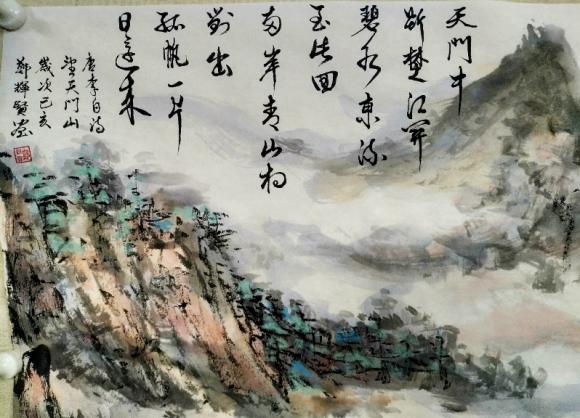 天門中
斷楚江開
碧水東流
至此回
兩岸青山相
對出
孤帆一片
日邊來
唐李白詩
望天門山
歲次己亥
鄭輝賢